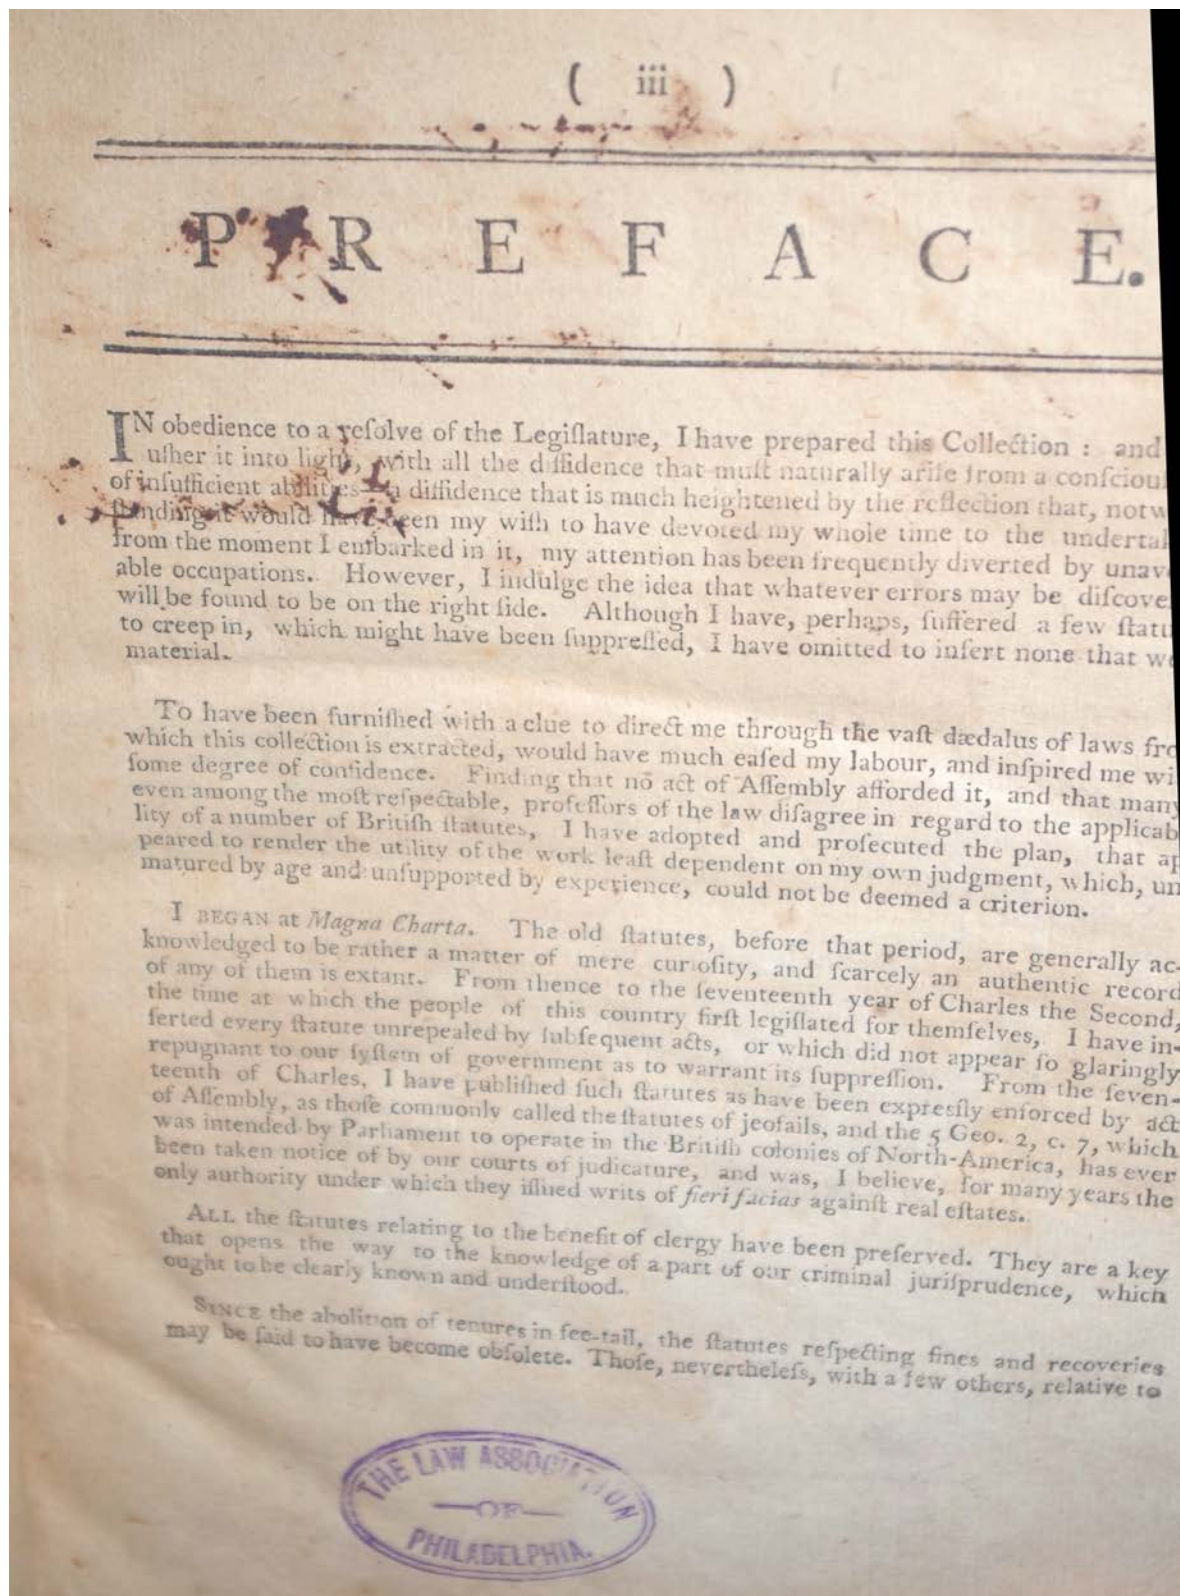 ( iii )
PREFACE.
IN obedience to a reſolve of the Legiſlature, I have prepared this Collection : and
uſher it into light, with all the diffidence that muſt naturally ariſe from a conſciouſ
of inſufficient abilities—a diffidence that is much heightened by the reflection that, notw
ſtanding it would have been my wiſh to have devoted my whole time to the undertak
from the moment I embarked in it, my attention has been frequently diverted by unav
able occupations. However, I indulge the idea that whatever errors may be diſcove
will be found to be on the right ſide. Although I have, perhaps, ſuffered a few ſtatu
to creep in, which might have been ſuppreſſed, I have omitted to inſert none that we
material.
To have been furniſhed with a clue to direct me through the vaſt dædalus of laws fro
which this collection is extracted, would have much eaſed my labour, and inſpired me wi
ſome degree of confidence. Finding that no act of Aſſembly afforded it, and that many
even among the moſt reſpectable, profeſſors of the law diſagree in regard to the applicab
lity of a number of Britiſh ſtatutes, I have adopted and proſecuted the plan, that ap
peared to render the utility of the work leaſt dependent on my own judgment, which, un
matured by age and unſupported by experience, could not be deemed a criterion.
I BEGAN at Magna Charta. The old ſtatutes, before that period, are generally ac-
knowledged to be rather a matter of mere curioſity, and ſcarcely an authentic record
of any of them is extant. From thence to the ſeventeenth year of Charles the Second,
the time at which the people of this country firſt legiſlated for themſelves, I have in-
ſerted every ſtatute unrepealed by ſubſequent acts, or which did not appear ſo glaringly
repugnant to our ſyſtem of government as to warrant its ſuppreſſion. From the ſeven-
teenth of Charles, I have publiſhed ſuch ſtatutes as have been expresſly enforced by act
of Aſſembly, as thoſe commonly called the ſtatutes of jeofails, and the 5 Geo. 2, c. 7, which
was intended by Parliament to operate in the Britiſh colonies of North-America, has ever
been taken notice of by our courts of judicature, and was, I believe, for many years the
only authority under which they iſſued writs of fieri facias againſt real eſtates.
ALL the ſtatutes relating to the benefit of clergy have been preſerved. They are a key
that opens the way to the knowledge of a part of our criminal juriſprudence, which
ought to be clearly known and underſtood.
SINCE the abolition of tenures in fee-tail, the ſtatutes reſpecting fines and recoveries
may be ſaid to have become obſolete. Thoſe, nevertheleſs, with a few others, relative to
THE LAW ASSOCIATION
OF
PHILADELPHIA.